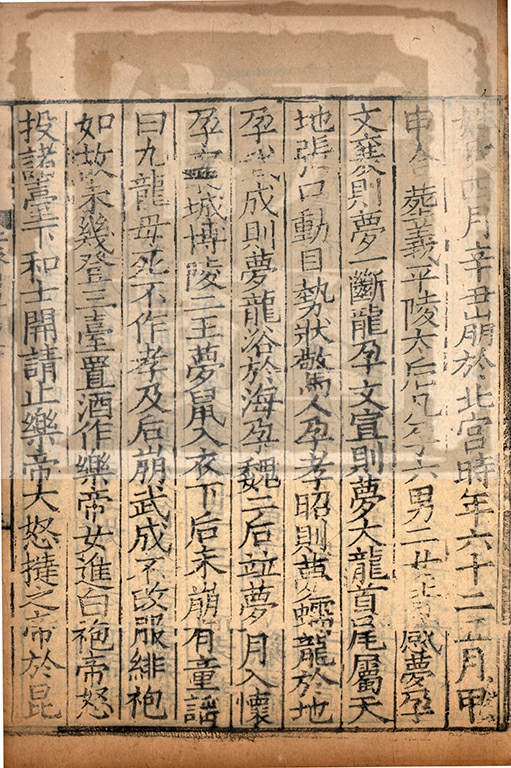 四月辛丑崩於北宮時年六十二五月甲
申合葬義平陵太后凡孕六男二女皆感夢孕
文襄則夢一斷龍孕文宣則夢大龍首尾屬天
地張口動目勢狀驚人孕孝昭則夢蠕龍於地
孕武成則夢龍浴於海孕魏二后並夢月入懷
孕襄城博陵二王夢鼠入衣下后未崩有童謠
曰九龍母死不作孝及后崩武成不改服緋袍
如故未幾登三臺置酒作樂帝女進白袍帝怒
投諸臺下和士開請止樂帝大怒撻之帝於昆